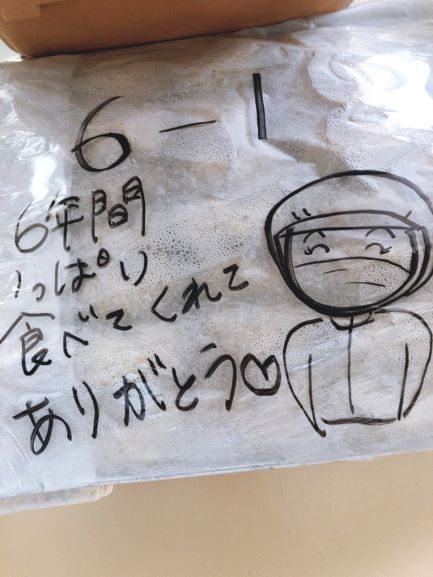 6-1
6年間
いっぱい
食べてくれて
ありがとう♡